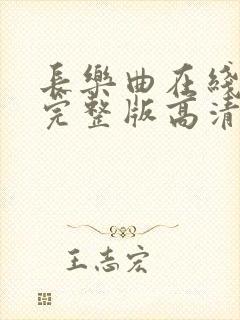 長樂曲在綫
完整版高清
王志宏